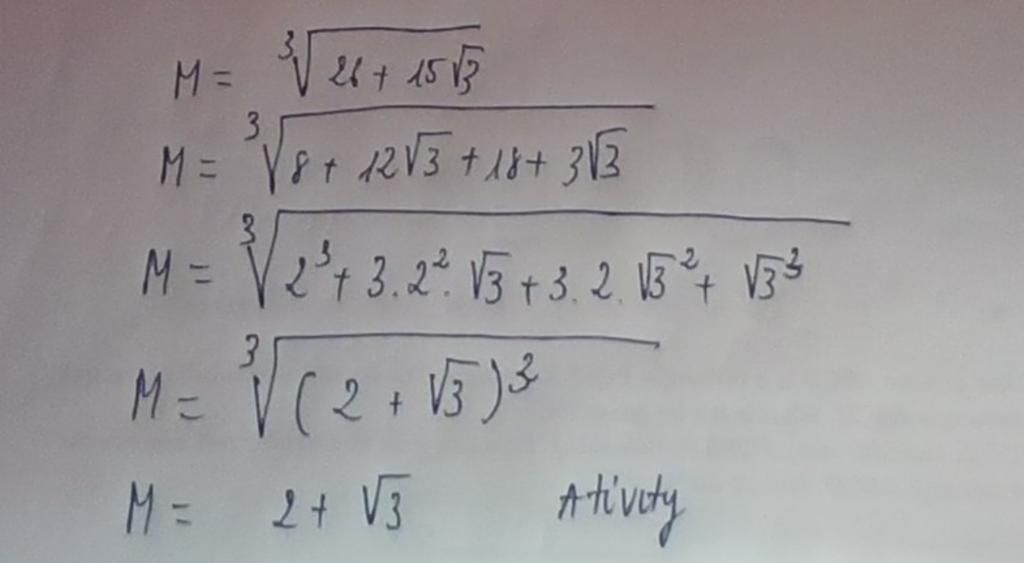 M = ∛(26 + 15√3)
M = ∛(8 + 12√3 + 18 + 3√3)
M = ∛(2³ + 3.2².√3 + 3.2.√3² + √3³)
M = ∛((2 + √3)³)
M = 2 + √3 Ativity